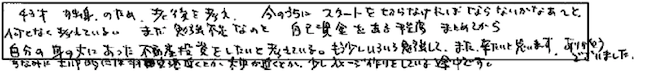 43才 独身 のため、老後を考え 今のうちに スタートを切らなければならないかなあ〜と
何となく考えている まだ 勉強不足なのと 自己資金をある程度 まとめてから
自分の身の丈にあった 不動産投資をしたいと考えている。もう少しいろいろ勉強して、また、来たいと思います。ありがとうございました。
ちなみに 立地的には 羽田空港近くとか 大田が近くとか、少しイメージ作りをしている 途中です。